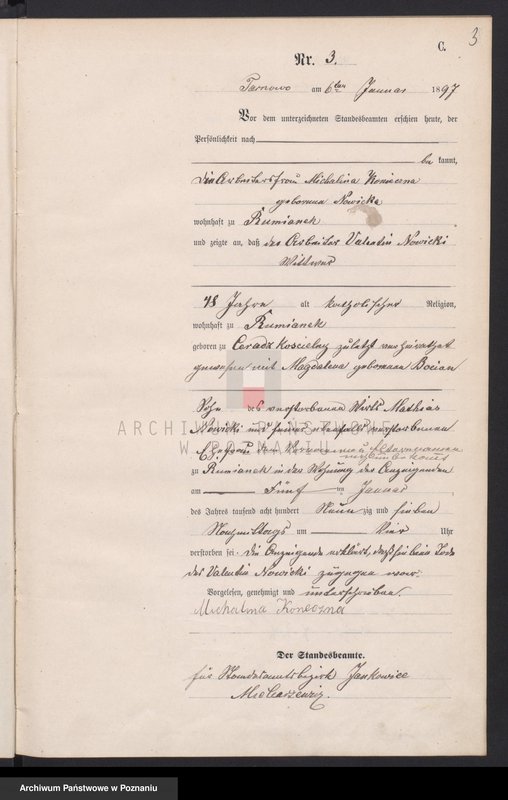 3
C.
Nr. 3.
Tarnowo am 6ten Januar 1897
Vor dem unterzeichneten Standesbeamten erschien heute, der
Persönlichkeit nach
be kannt,
die Arbeitersfrau Michalina Konieczna
geborene Nowicka
wohnhaft zu Rumianek
und zeigte an, daß der Arbeiter Valentin Nowicki
Wittwer
78 Jahre alt katholischer Religion,
wohnhaft zu Rumianek
geboren zu Ceradz Koscielny zuletzt verheirathet
gewesen mit Magdalena geborenen Bocian
Sohn des verstorbenen Wirts Mathias
Nowicki und seiner ebenfalls verstorbenen
Ehefrau deren Vorname u Vatersnamen
nicht bekannt
zu Rumianek in der Wohnung des Anzeigenden
am Fünf ten Januar
des Jahres tausend acht hundert Neun zig und sieben
Nachmittags um Vier Uhr
verstorben sei. Die Anzeigende erklärt, daß sie beim Tode
des Valentin Nowicki zugegen war.
Vorgelesen, genehmigt und unterschrieben.
Michalina Konieczna
Der Standesbeamte.
für Standesamtsbezirk Jankowice
ARCHIWUM PAŃSTWOWE
W POZNANIU
Archiwum Państwowe w Poznaniu